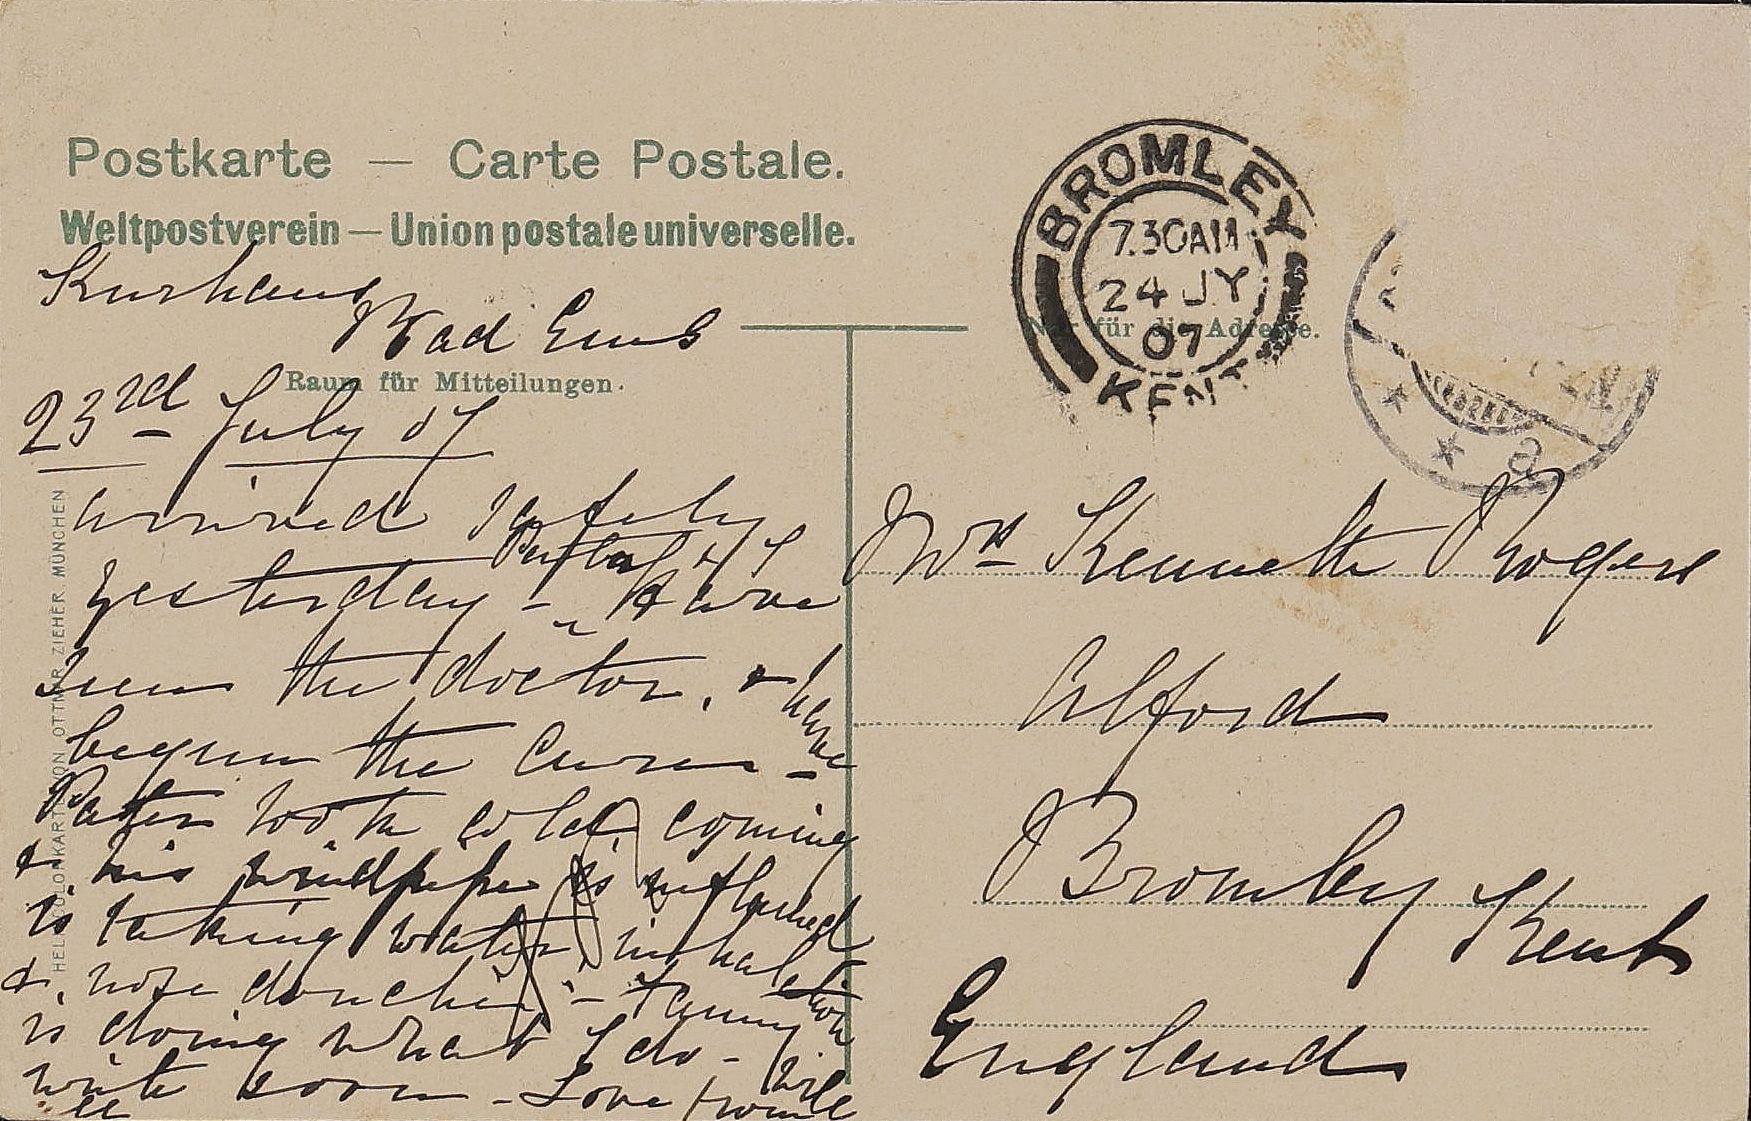 Postkarte — Carte Postale.
Weltpostverein — Union postale universelle.
Nur für die Adresse.
Raum für Mitteilungen.
BROMLEY
7.30AM
24 JY
07
KENT
a
Kurhaus
Bad Ems
23rd July 07
arrived safely
yesterday - Have
seen the doctor, & have
begun the cures -
Pater took cold coming
&, his windpipe is inflamed
is taking water, inhalation
&, nose douche -
is doing what I do - will
write soon - Love from
all
Mrs Kenneth Rogers
Alford
Bromley Kent
England
OTTMAR ZIEHER MÜNCHEN